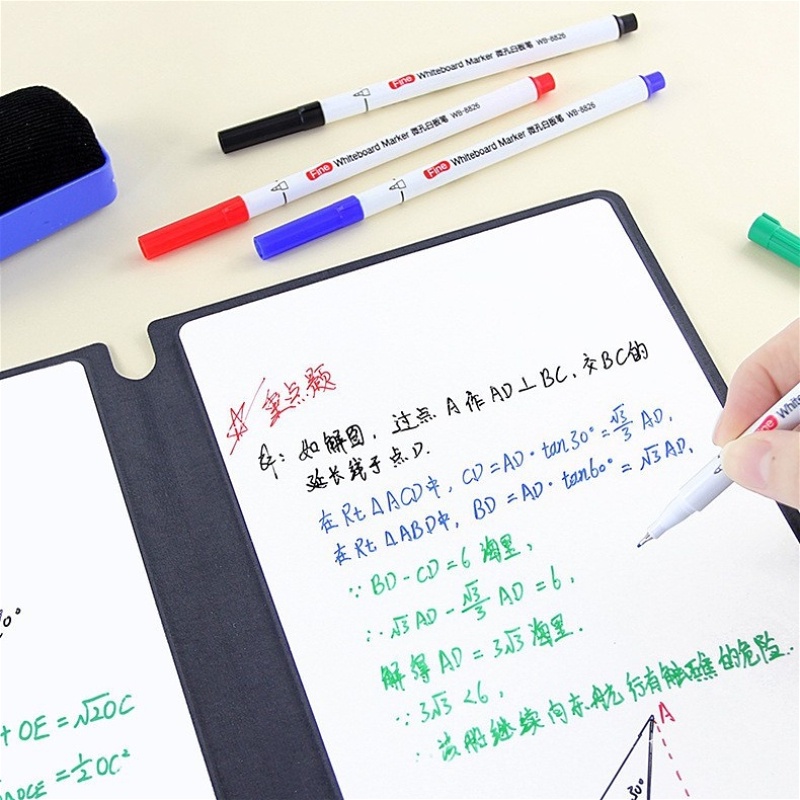 Fine Whiteboard Marker 微孔白板笔 WB-8826
Fine Whiteboard Marker 微孔白板笔 WB-8826
Fine Whiteboard Marker 微孔白板笔 WB-8826
重点题
解:如解图,过点A作AD⊥BC,交BC的
延长线于点D.
在Rt△ACD中,CD=AD·tan30°=√3/3 AD,
在Rt△ABD中,BD=AD·tan60°=√3AD,
∵BD-CD=6海里,
∴√3AD-√3/3 AD=6,
解得AD=3√3海里.
∵3√3<6,
∴该船继续向东航行有触礁的危险.
A
30°
0°
+OE=√2OC
=½OC²
Fine